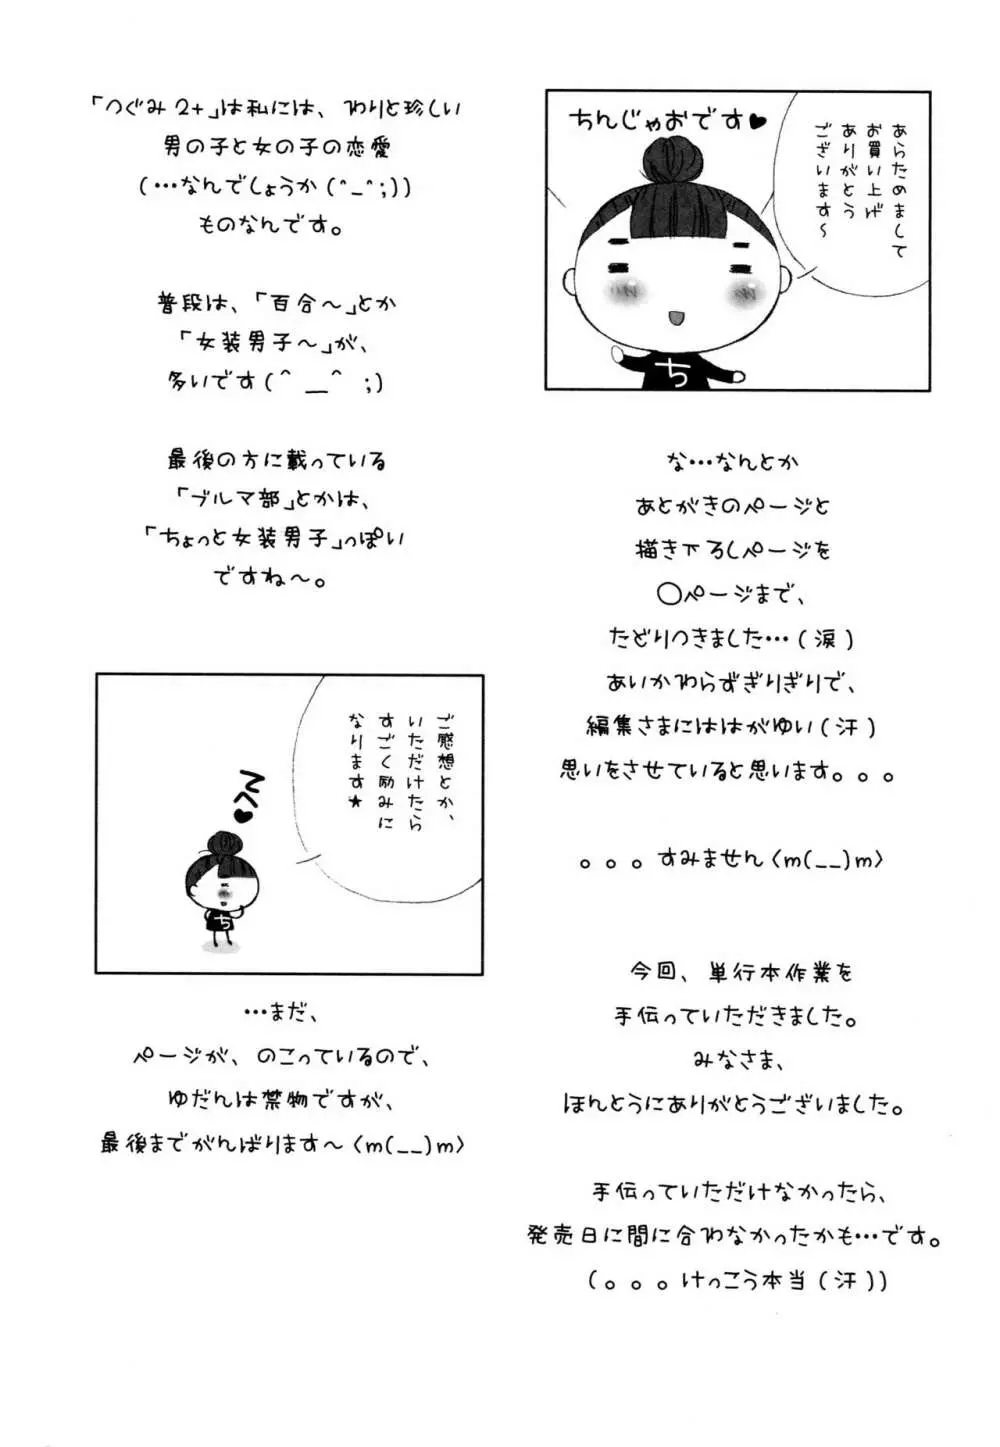 ちんじゃおです♥
あらためまして
お買い上げ
ありがとう
ございます～
ち
な…なんとか
あとがきのページと
描き下ろしページを
〇ページまで、
たどりつきました…(涙)
あいかわらずぎりぎりで、
編集さまにははがゆい(汗)
思いをさせていると思います。。。
。。。すみません〈m(__)m〉
今回、単行本作業を
手伝っていただきました。
みなさま、
ほんとうにありがとうございました。
手伝っていただけなかったら、
発売日に間に合わなかったかも…です。
(。。。けっこう本当(汗))
「つぐみ2+」は私には、わりと珍しい
男の子と女の子の恋愛
(…なんでしょうか(^_^;))
ものなんです。
普段は、「百合～」とか
「女装男子～」が、
多いです(^__^ ;)
最後の方に載っている
「ブルマ部」とかは、
「ちょっと女装男子」っぽい
ですね～。
ご感想とか、
いただけたら
すごく励みに
なります★
ち
…まだ、
ページが、のこっているので、
ゆだんは禁物ですが、
最後までがんばります～〈m(__)m〉